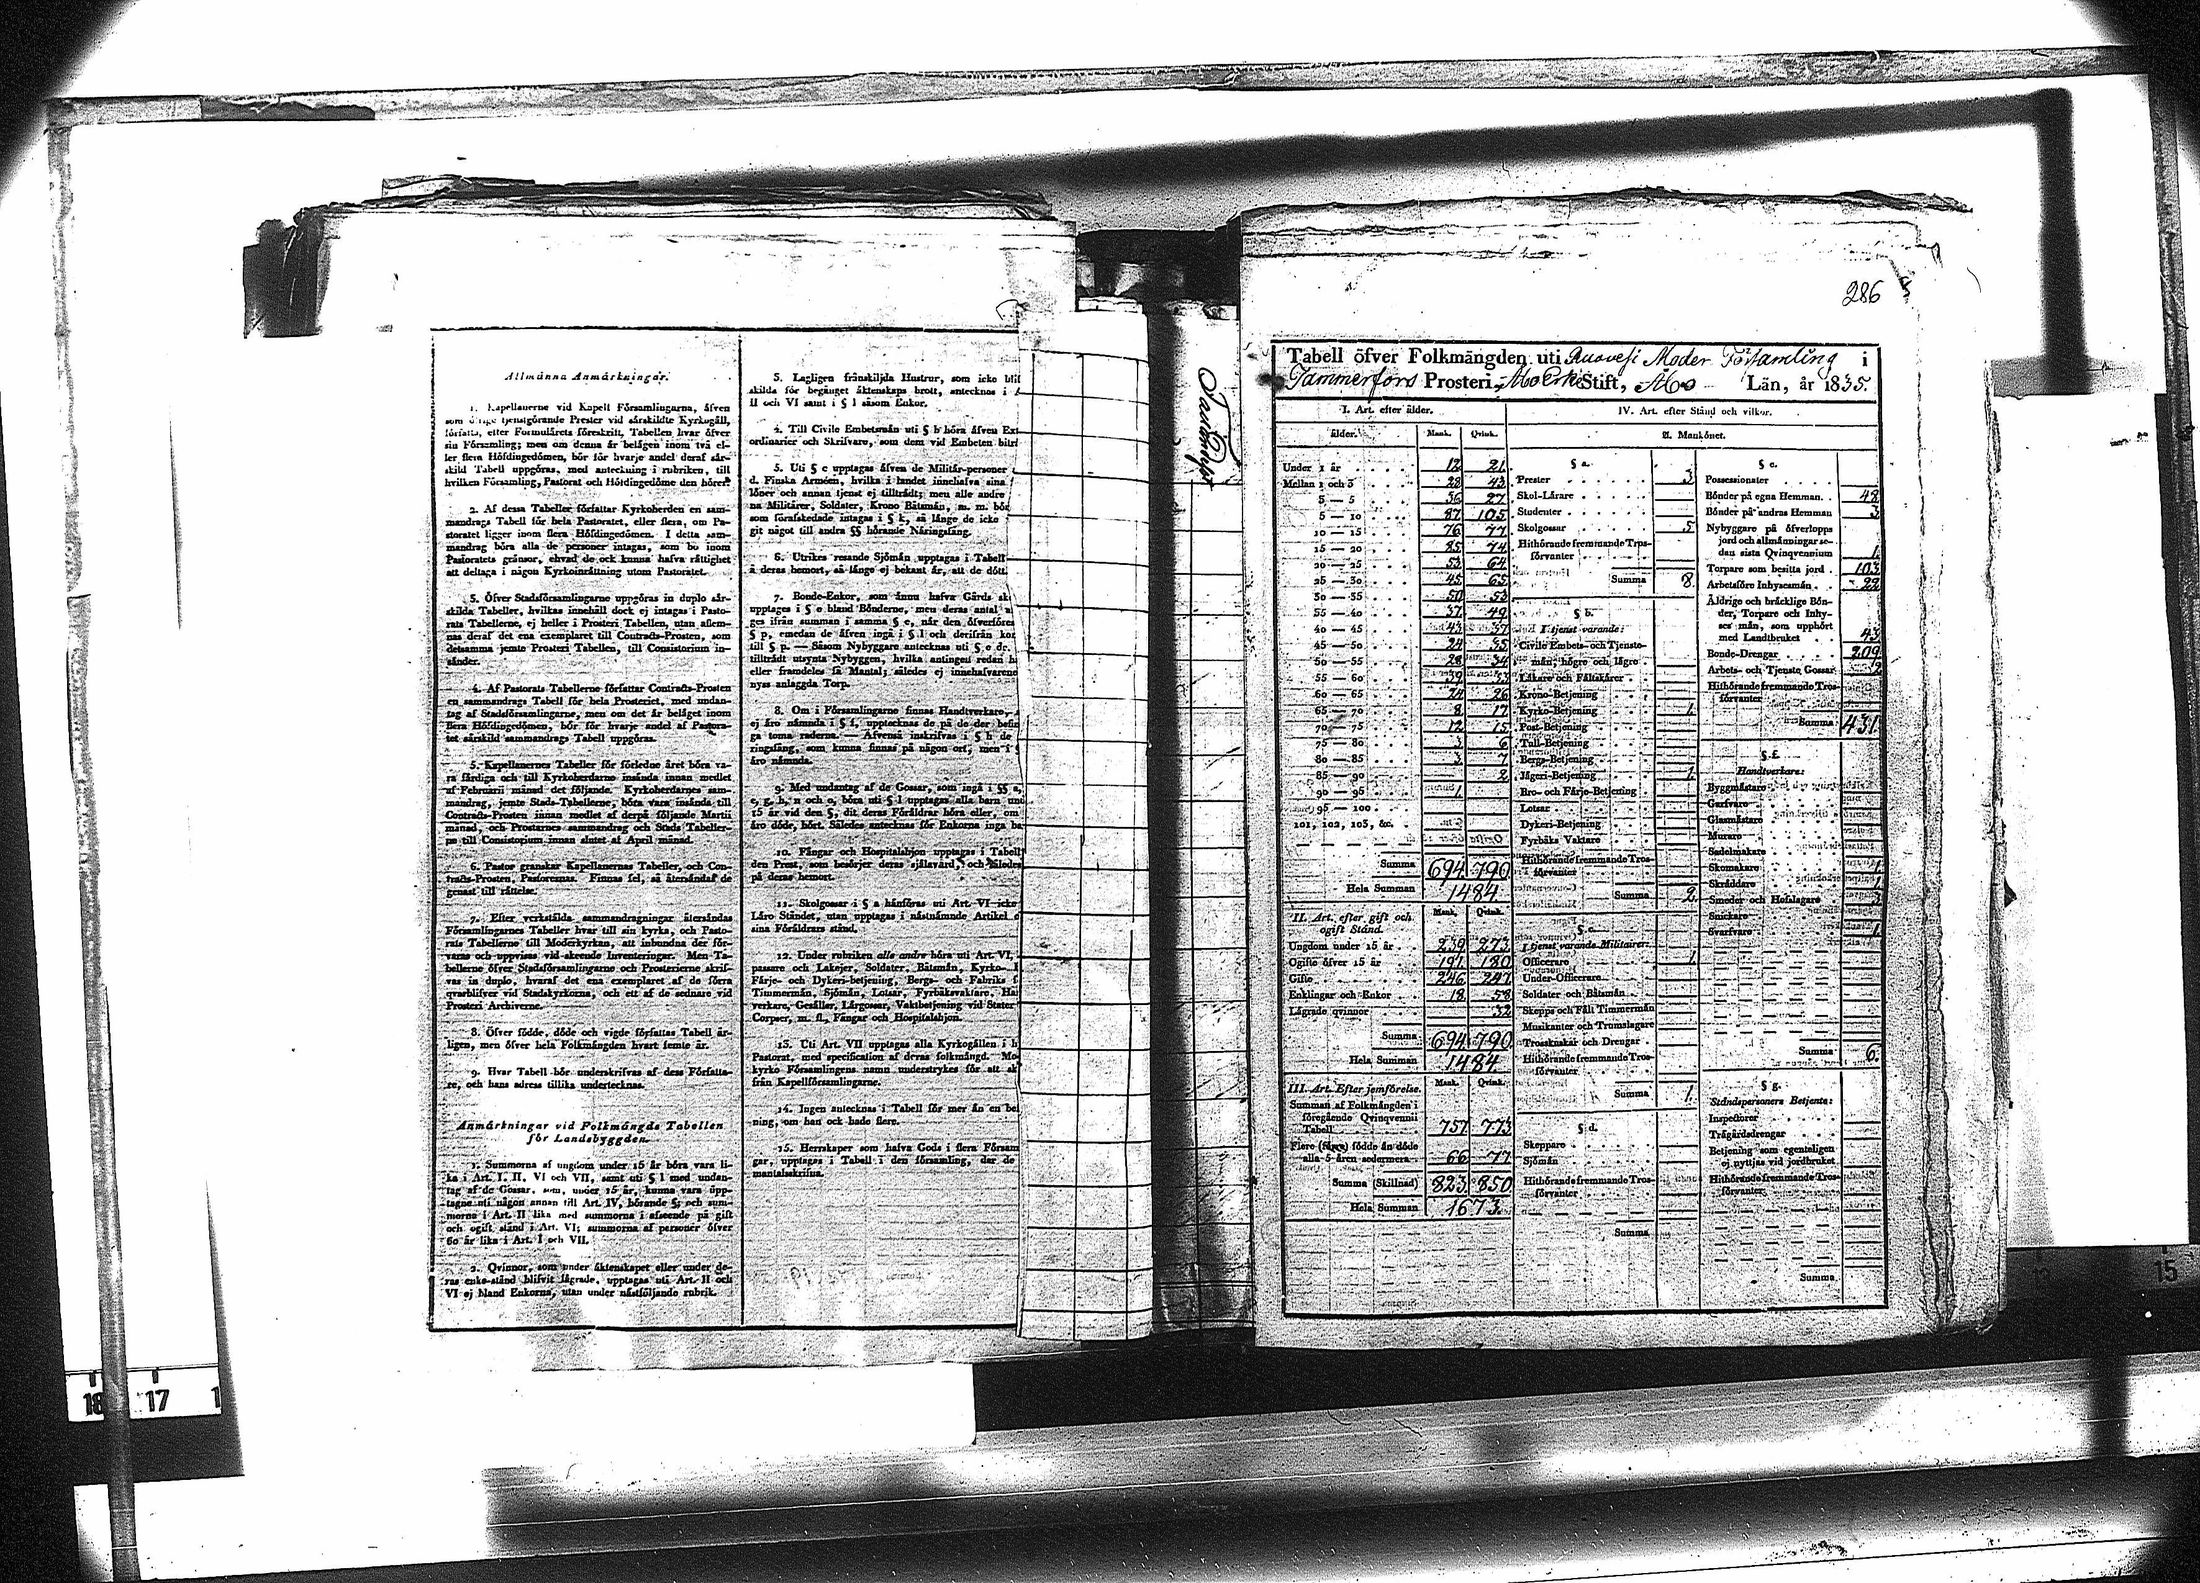 Allmänna Anmärkningar.
1. Kapellanerne vid Kapell Församlingarna, äfven
som öfrige tjenstgörande Prester vid särskildte Kyrkogäll,
författa, efter Formulärets föreskrift, Tabellen hvar öfver
sin Församling; men om denna är belägen inom två el-
ler flera Höfdingedömen, bör för hvarje andel deraf sär-
skild Tabell uppgöras, med anteckning i rubriken, till
hvilken Församling, Pastorat och Höfdingedöme den hörer.
2. Af dessa Tabeller författar Kyrkoherden en sam-
mandrags Tabell för hela Pastoratet, eller flera, om Pa-
storatet ligger inom flera Höfdingedömen. I detta sam-
mandrag böra alla de personer intagas, som bo inom
Pastoratets gränsor, ehvad de ock kunna hafva rättighet
att deltaga i någon Kyrkoinrättning utom Pastoratet.
3. Öfver Stadsförsamlingarne uppgöras in duplo sär-
skilda Tabeller, hvilkas innehåll dock ej intagas i Pasto-
rats Tabellerne, ej heller i Prosteri Tabellen, utan aflem-
nas deraf det ena exemplaret till Contracts-Prosten, som
detsamma jemte Prosteri Tabellen, till Consistorium in-
sänder.
4. Af Pastorats Tabellerne författar Contracts-Prosten
en sammandrags Tabell för hela Prosteriet, med undan-
tag af Stadsförsamlingarne, men om det är beläget inom
flera Höfdingedömen, bör för hvarje andel af Pastora-
tet särskild sammandrags Tabell uppgöras.
5. Kapellanernes Tabeller för förledne året böra va-
ra färdiga och till Kyrkoherdarne insända innan medlet
af Februarii månad det följande. Kyrkoherdarnes sam-
mandrag, jemte Stads-Tabellerne, böra vara insända till
Contracts-Prosten innan medlet af derpå följande Martii
månad, och Prostarnes sammandrag och Stads Tabeller-
ne till Consistorium innan slutet af April månad.
6. Pastor granskar Kapellanernas Tabeller, och Con-
tracts-Prosten, Pastorernas. Finnas fel, så återsändas de
genast till rättelse.
7. Efter verkställda sammandragningar återsändas
Församlingarnes Tabeller hvar till sin kyrka, och Pasto-
rats Tabellerne till Moderkyrkan, att inbundna der för-
varas och uppvisas vid skeende Inventeringar. Men Ta-
bellerne öfver Stadsförsamlingarne och Prosterierne skrif-
vas in duplo, hvaraf det ena exemplaret af de förra
qvarblifver vid Stadskyrkorna, och ett af de sednare vid
Prosteri Archiverne.
8. Öfver födde, döde och vigde författas Tabell år-
ligen, men öfver hela Folkmängden hvart femte år.
9. Hvar Tabell bör underskrifvas af dess Författa-
re, och hans adress tillika undertecknas.
Anmärkningar vid Folkmängds Tabellen
för Landsbygden.
1. Summorna af ungdom under 15 år böra vara li-
ka i Art. I. II. VI och VII, samt uti § l med undan-
tag af de Gossar, som, under 15 år, kunna vara upp-
tagne uti någon annan till Art. IV, hörande §; och sum-
morna i Art. II lika med summorna i afseende på gift
och ogift stånd i Art. VI; summorna af personer öfver
60 år lika i Art. I och VII.
2. Qvinnor, som under äktenskapet eller under de-
ras enke-stånd blifvit lägrade, upptagas uti Art. II och
VI ej bland Enkorna, utan under nästföljande rubrik.
3. Lagligen frånskiljda Hustrur, som icke blif
skilda för begånget äktenskaps brott, antecknas i
II och VI samt i § l såsom Enkor.
4. Till Civile Embetsmän uti § b höra äfven Ext
ordinarier och Skrifvare, som dem vid Embeten biträ
5. Uti § c upptagas äfven de Militär-personer
d. Finska Arméen, hvilka i landet innehafva sina
löner och annan tjenst ej tillträdt; men alle andre
na Militärer, Soldater, Krono Båtsmän, m. m. bör
som förafskedade intagas i § k, så länge de icke
git något till andra §§ hörande Näringsfång.
6. Utrikes resande Sjömän upptagas i Tabell
å deras hemort, så länge ej bekant är, att de dött.
7. Bonde-Enkor, som ännu hafva Gårds sk
upptages i § e bland Bönderne, men deras antal a
ges ifrån summan i samma § e, när den öfverföres
§ p, emedan de äfven ingå i § l och derifrån kom
till § p. — Såsom Nybyggare antecknas uti § e de,
tillträdt utsynta Nybyggen, hvilka antingen redan h
eller framdeles få Mantal; således ej innehafvarene
nyss anlaggda Torp.
8. Om i Församlingarne finnas Handtverkare,
ej äro nämnda i § f, upptecknas de på de der befin
ga toma raderna. — Äfvenså inskrifvas i § h de
ringsfång, som kunna finnas på någon ort, men i
äro nämnda.
9. Med undantag af de Gossar, som ingå i §§ a,
e, g, h, n och o, böra uti § l upptagas alla barn und
15 år vid den §, dit deras Föräldrar höra eller, om
äro döde, hört. Således antecknas för Enkorna inga ba
10. Fångar och Hospitalshjon upptagas i Tabell
den Prest, som besörjer deras själavård, och således
på deras hemort.
11. Skolgossar i § a hänföras uti Art. VI icke
Läro Ståndet, utan upptagas i nästnämnde Artikel
sina Föräldrars stånd.
12. Under rubriken alle andre böra uti Art. VI,
passare och Lakejer, Soldater, Båtsmän, Kyrko-
Färje- och Dykeri-betjening, Bergs- och Fabriks
Timmermän, Sjömän, Lotsar, Fyrbåksvaktare, Ha
verkare, Gesäller, Lärgossar, Vaktbetjening vid Stater
Corpser, m. fl., Fångar och Hospitalshjon.
13. Uti Art. VII upptagas alla Kyrkogällen i h
Pastorat, med specification af deras folkmängd. Mo
kyrko Församlingens namn understrykes för att sk
från Kapellförsamlingarne.
14. Ingen antecknas i Tabell för mer än en be
ning, om han ock hade flere.
15. Herrskaper som hafva Gods i flera Försam
gar, upptagas i Tabell i den församling, der de
mantalsskrifna.
286
Tabell öfver Folkmängden uti Ruovesi Moder Församling i
Tammerfors Prosteri, Åbo Erke Stift, Åbo Län, år 1835.
I. Art. efter ålder.
ålder. Mank. Qvink.
Under 1 år 12 21
Mellan 1 och 3 28 43
3 — 5 36 27
5 — 10 87 105
10 — 15 76 77
15 — 20 85 74
20 — 25 53 64
25 — 30 45 65
30 — 35 50 53
35 — 40 37 49
40 — 45 43 37
45 — 50 24 35
50 — 55 28 34
55 — 60 39 33
60 — 65 24 26
65 — 70 8 17
70 — 75 12 15
75 — 80 3 6
80 — 85 3 7
85 — 90 2
90 — 95 1
95 — 100
101, 102, 103, &c.
Summa 694 790
Hela Summan 1484
II. Art. efter gift och
ogift Stånd. Mank. Qvink.
Ungdom under 15 år 239 273
Ogifte öfver 15 år 191 180
Gifte 246 247
Enklingar och Enkor 18 58
Lägrade qvinnor 32
Summa 694 790
Hela Summan 1484
III. Art. Efter jemförelse. Mank. Qvink.
Summan af Folkmängden i
föregående Qvinqvennii
Tabell 757 773
Flere (färre) födde än döde
alla 5 åren sedermera 66 77
Summa (Skillnad) 823 850
Hela Summan 1673
IV. Art. efter Stånd och vilkor.
A. Mankönet.
§ a.
Prester 3
Skol-Lärare
Studenter
Skolgossar 5
Hithörande fremmande Tros-
förvanter
Summa 8
§ b.
I tjenst varande:
Civile Embets- och Tjenste-
män, högre och lägre
Läkare och Fältskärer
Krono-Betjening
Kyrko-Betjening 1
Post-Betjening
Tull-Betjening
Bergs-Betjening
Jägeri-Betjening 1
Bro- och Färje-Betjening
Lotsar
Dykeri-Betjening
Fyrbåks Vaktare
Hithörande fremmande Tros-
förvanter
Summa 2
§ c.
I tjenst varande Militairer
Officerare 1
Under-Officerare
Soldater och Båtsmän
Skepps och Fält Timmermän
Musikanter och Trumslagare
Trosskuskar och Drengar
Hithörande fremmande Tros-
förvanter
Summa 1
§ d.
Skeppare
Sjömän
Hithörande fremmande Tros-
förvanter
Summa
§ e.
Possessionater
Bönder på egna Hemman 48
Bönder på andras Hemman 3
Nybyggare på öfverlopps
jord och allmänningar se-
dan sista Qvinqvennium 1
Torpare som besitta jord 103
Arbetsföre Inhysesmän 22
Åldrige och bräcklige Bön-
der, Torpare och Inhy-
ses män, som upphört
med Landtbruket 43
Bonde-Drengar 209
Arbets- och Tjenste Gossar 2
Hithörande fremmande Tros-
förvanter
Summa 431
§ f.
Handtverkare:
Byggmästare
Garfvare
Glasmästare
Murare
Sadelmakare
Skomakare 1
Skräddare 1
Smeder och Hofslagare 3
Snickare
Svarfvare 1
Summa 6
§ g.
Ståndspersoners Betjente:
Inspectorer
Trägårdsdrengar
Betjening som egenteligen
ej nyttjas vid jordbruket
Hithörande fremmande Tros-
förvanter
Summa
18 17 1
15